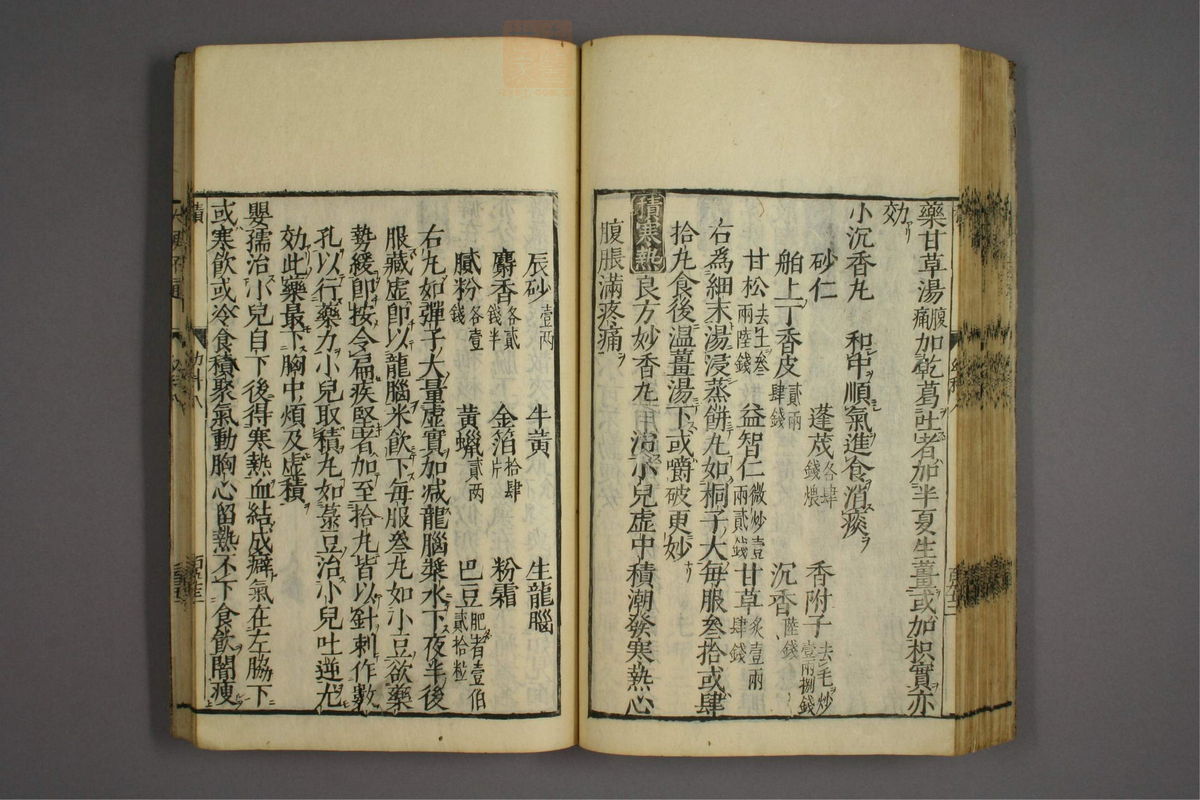 藥甘草湯腹痛加乾葛吐者加半夏生薑或加枳實亦
効
小沉香丸 和中順氣進食消痰
砂仁 蓬莪各肆錢煨 香附子去毛炒壹兩捌錢
舶上丁香皮貳兩肆錢 沉香陸錢
甘松去生叁兩陸錢 益智仁微炒壹兩貳錢 甘草炙壹兩肆錢
右爲細末湯浸蒸餅丸如桐子大每服叁拾或肆
拾丸食後温薑湯下或嚼破更妙
積寒熱 良方妙香丸用治小兒虚中積潮發寒熱心
腹脹滿疼痛
辰砂壹两 牛黄 生龍腦
麝香各貳錢半 金箔拾肆片 粉霜
膩粉各壹錢 黄蠟貳两 巴豆肥者壹伯貳拾粒
右丸如彈子大量虚實加减龍腦漿水下夜半後
服藏虚卽以龍腦米飲下每服叁丸如小豆欲藥
勢緩卽按令扁疾堅者加至拾丸皆以針刺作數
孔以行藥力小兒取積丸如菉豆治小兒吐逆尤
効此藥最下胸中煩及虚積
嬰孺治小兒自下後得寒熱血結成癖氣在左脇下
或寒飲或冷食積聚氣動胸心留熱不下食飲闇瘦